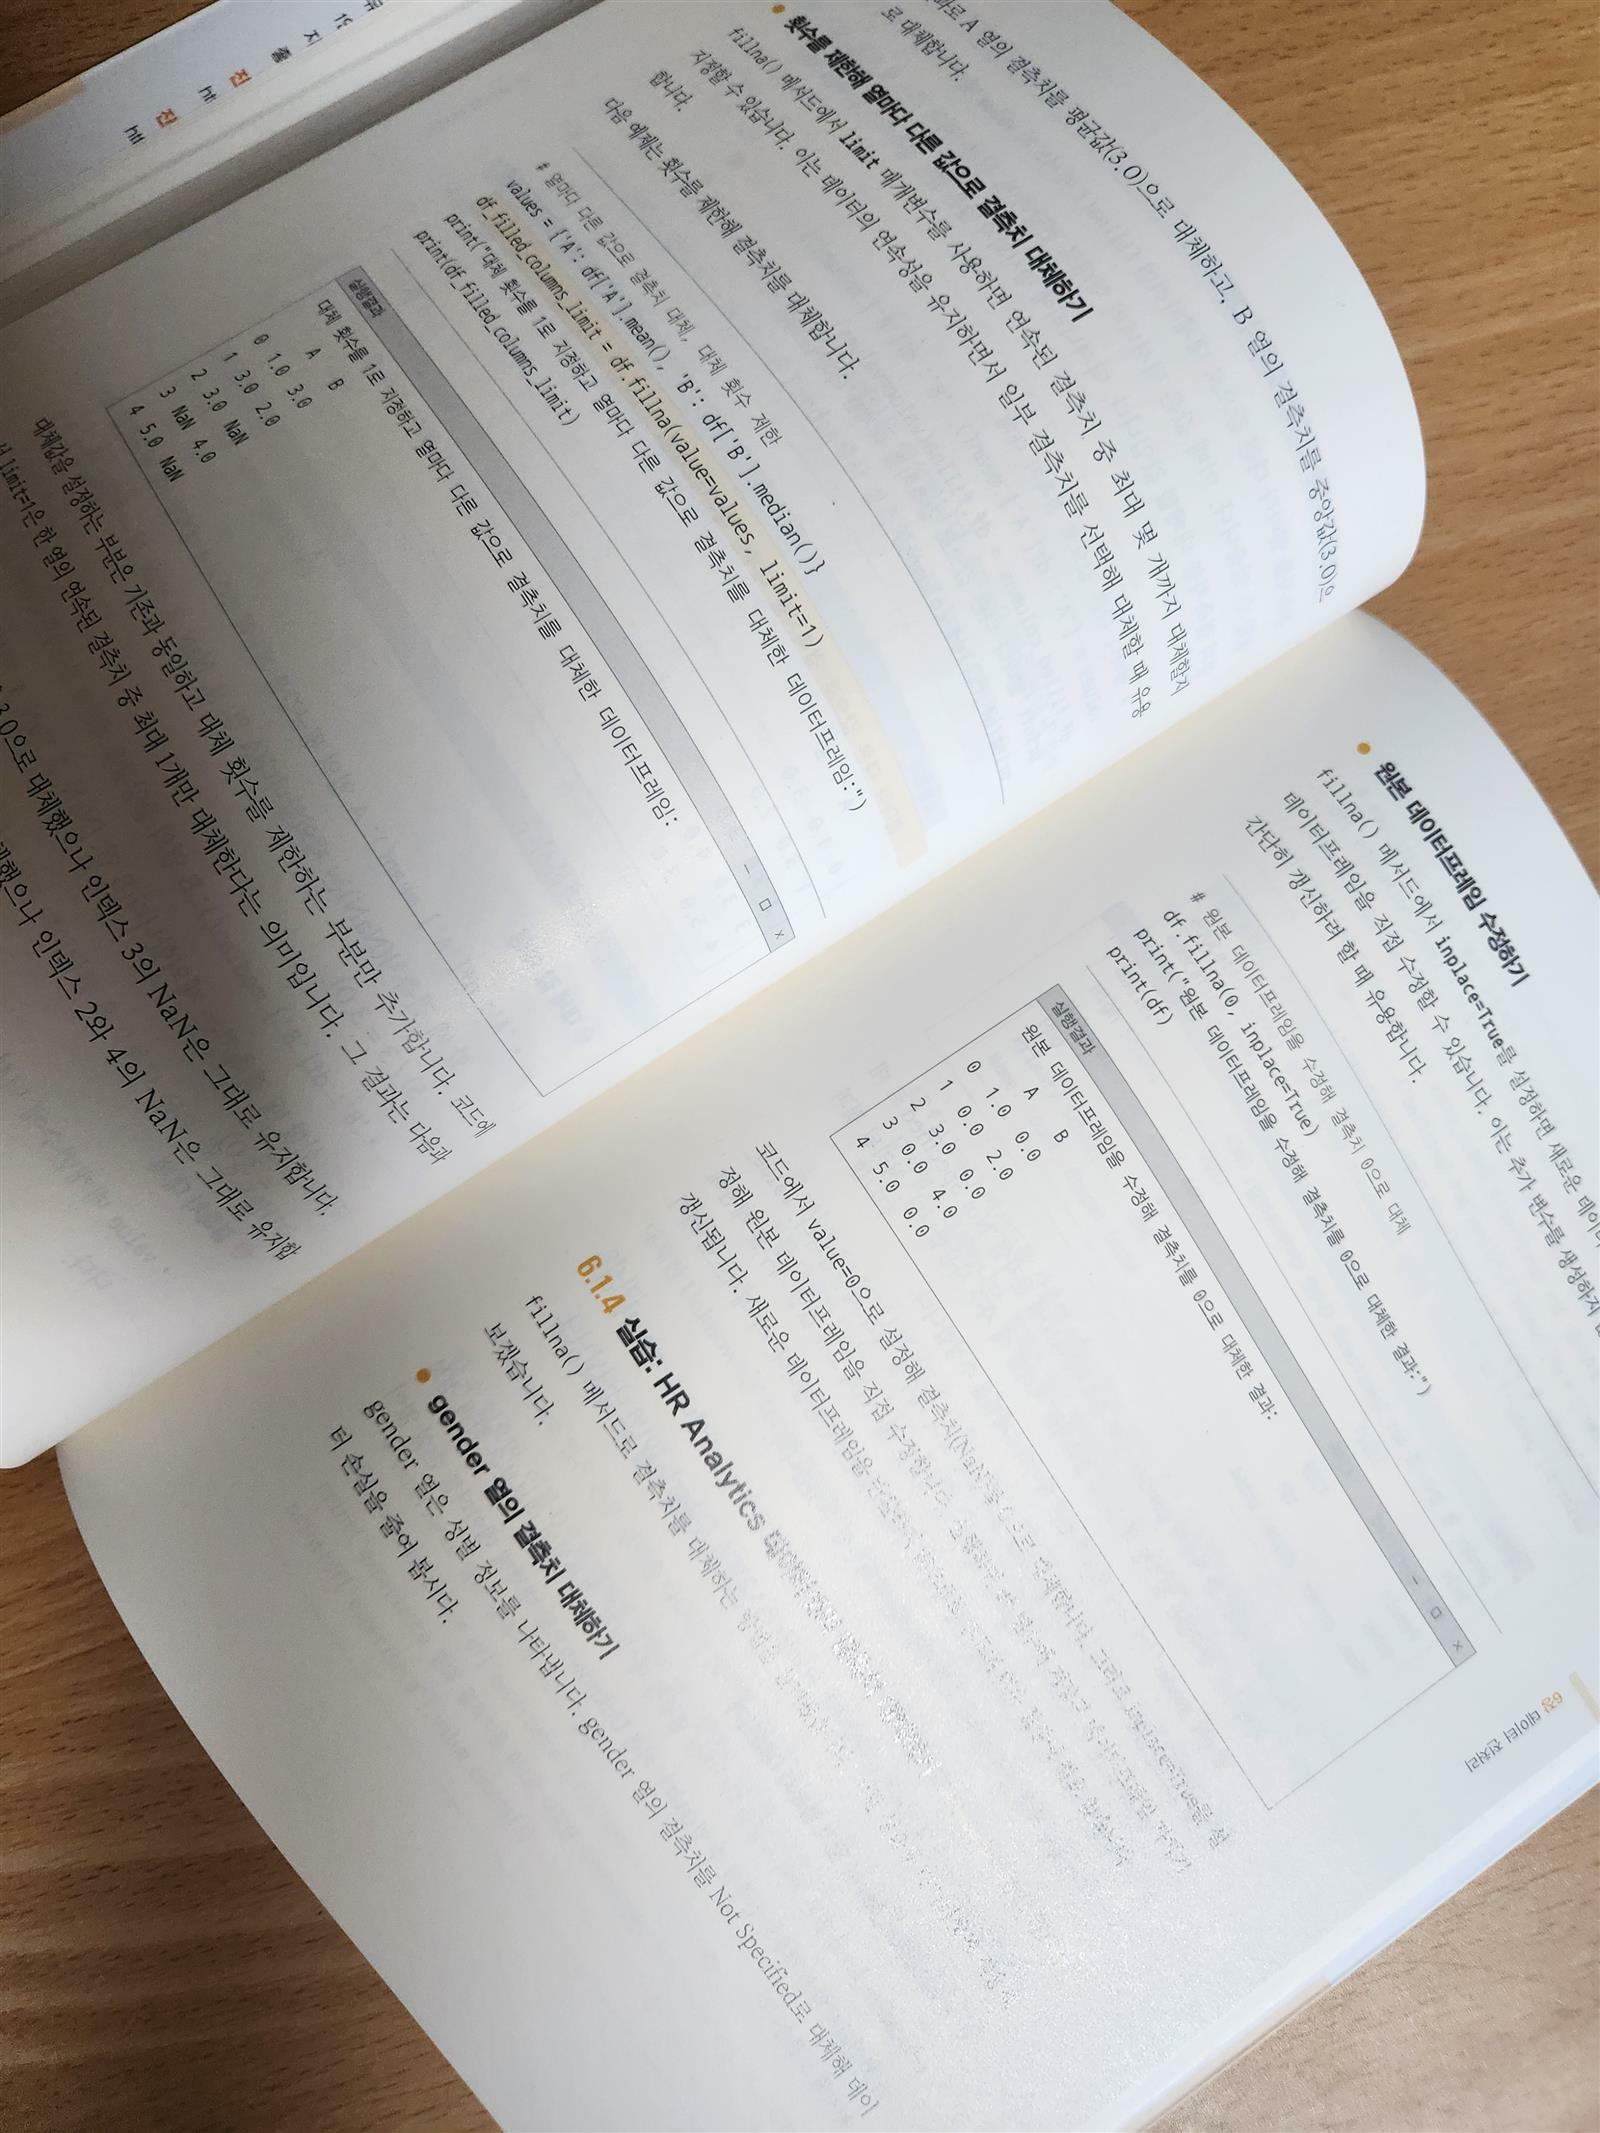 로 A 열의 결측치를 평균값(3.0)으로 대체하고, B 열의 결측치를 중앙값(3.0)으
로 대체합니다.
• 횟수를 제한해 열마다 다른 값으로 결측치 대체하기
fillna() 메서드에서 limit 매개변수를 사용하면 연속된 결측치 중 최대 몇 개까지 대체할지
지정할 수 있습니다. 이는 데이터의 연속성을 유지하면서 일부 결측치를 선택해 대체할 때 유용
합니다.
다음 예제는 횟수를 제한해 결측치를 대체합니다.
# 열마다 다른 값으로 결측치 대체, 대체 횟수 제한
values = {'A': df['A'].mean(), 'B': df['B'].median()}
df_filled_columns_limit = df.fillna(value=values, limit=1)
print("대체 횟수를 1로 지정하고 열마다 다른 값으로 결측치를 대체한 데이터프레임:")
print(df_filled_columns_limit)
실행결과 - □ ×
대체 횟수를 1로 지정하고 열마다 다른 값으로 결측치를 대체한 데이터프레임:
A B
0 1.0 3.0
1 3.0 2.0
2 3.0 NaN
3 NaN 4.0
4 5.0 NaN
대체값을 설정하는 부분은 기존과 동일하고 대체 횟수를 제한하는 부분만 추가합니다. 코드에
서 limit=1은 한 열의 연속된 결측치 중 최대 1개만 대체한다는 의미입니다. 그 결과는 다음과
3.0으로 대체했으나 인덱스 3의 NaN은 그대로 유지합니다.
했으나 인덱스 2와 4의 NaN은 그대로 유지합
• 원본 데이터프레임 수정하기
fillna() 메서드에서 inplace=True를 설정하면 새로운 데이
데이터프레임을 직접 수정할 수 있습니다. 이는 추가 변수를 생성하지
간단히 갱신하려 할 때 유용합니다.
# 원본 데이터프레임을 수정해 결측치 0으로 대체
df.fillna(0, inplace=True)
print("원본 데이터프레임을 수정해 결측치를 0으로 대체한 결과:")
print(df)
실행결과 - □ ×
원본 데이터프레임을 수정해 결측치를 0으로 대체한 결과:
A B
0 1.0 0.0
1 0.0 2.0
2 3.0 0.0
3 0.0 4.0
4 5.0 0.0
코드에서 value=0으로 설정해 결측치(NaN)를 0으로 대체합니다. 그리고 inplace=True를 설
정해 원본 데이터프레임을 직접 수정합니다.
갱신됩니다. 새로운 데이터프레임을
6.1.4 실습: HR Analytics
fillna() 메서드로 결측치를 대체하는 방법을
보겠습니다.
• gender 열의 결측치 대체하기
gender 열은 성별 정보를 나타냅니다. gender 열의 결측치를 Not Specified로 대체해 데이
터 손실을 줄여 봅시다.
6장 데이터 전처리